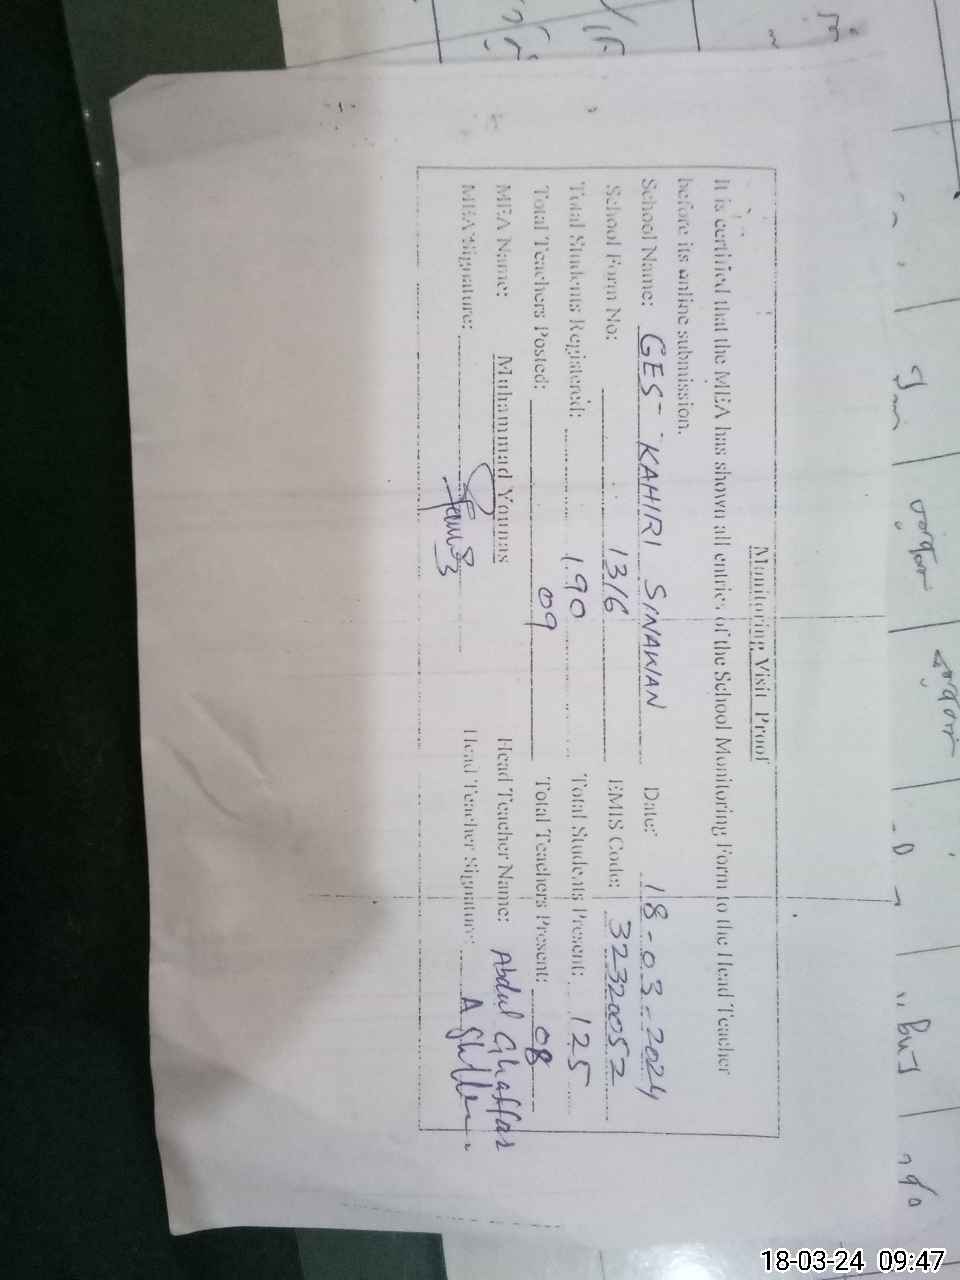 Monitoring Visit Proof
It is certified that the MEA has shown all entries of the School Monitoring Form to the Head Teacher
before its online submission.
School Name: GES- KAHIRI SINAWAN Date: 18-03-2024
School Form No: 1316 EMIS Code: 32320052
Total Students Registered: 190 Total Students Present: 125
Total Teachers Posted: 09 Total Teachers Present: 08
MEA Name: Muhammad Younas Head Teacher Name: Abdul Ghaffar
MEA Signature: Head Teacher Signature:
18-03-24 09:47